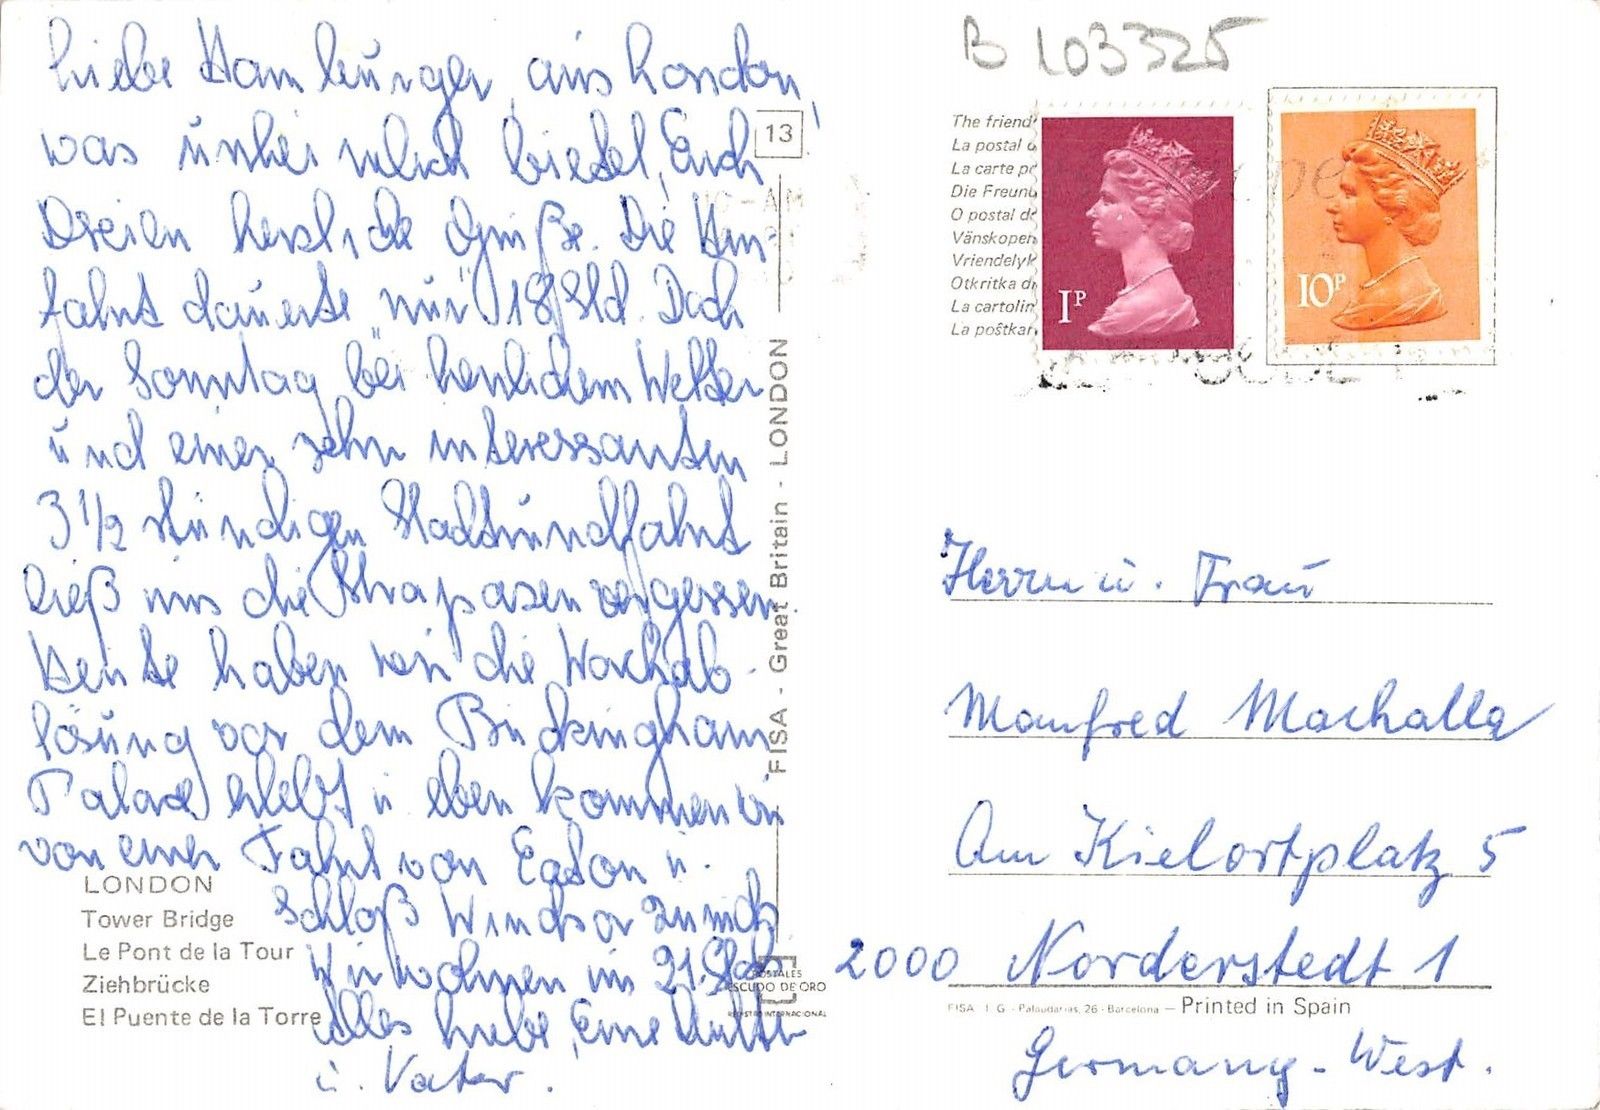 Liebe Hamburger, aus London,
was unheimlich bietet, Euch
Dreien herzliche Grüße. Die An-
fahrt dauerte "nur" 18 Std. Doch
der Sonntag bei herrlichem Wetter
und einer sehr interessanten
3 1/2 stündigen Stadtrundfahrt
ließ uns die Strapasen vergessen.
Heute haben wir die Wachab-
lösung vor dem Buckingham
Palace erlebt u. eben kommen wir
von einer Fahrt von Eaton u.
Schloß Windsor zurück
Wir wohnen im 21. Stock
Alles Liebe, Eure Mutti
u. Vater.
LONDON
Tower Bridge
Le Pont de la Tour
Ziehbrücke
El Puente de la Torre
13
FISA - Great Britain - LONDON
POSTALES
ESCUDO DE ORO
REGISTRO INTERNACIONAL
B 103325
The friend
La postal d
La carte po
Die Freund
O postal d
Vänskopen
Vriendelyk
Otkritka d
La cartolin
La poštkar
1P
10P
Herrn u. Frau
Manfred Machalla
Am Kielortplatz 5
2000 Norderstedt 1
FISA I. G. - Palaudarias, 26 - Barcelona — Printed in Spain
Germany - West.